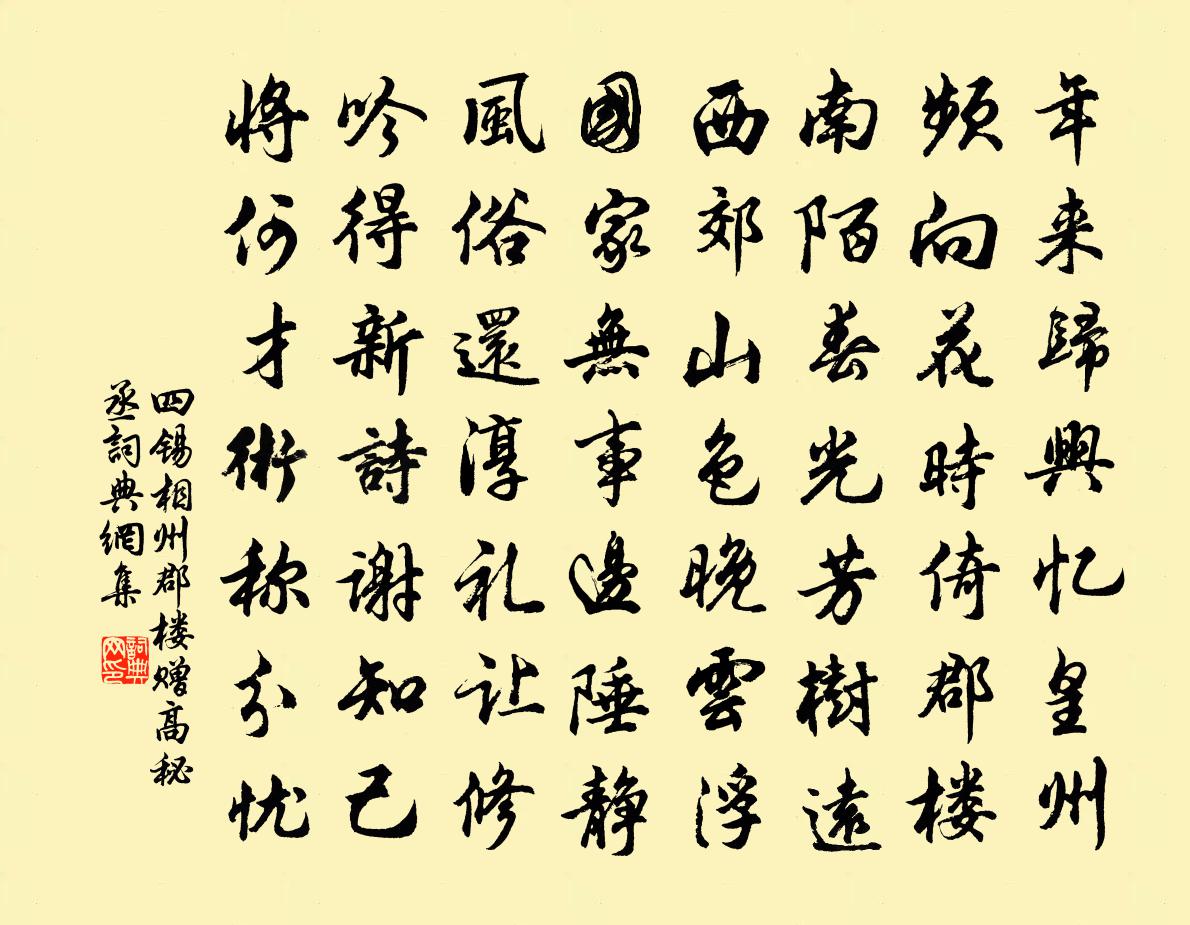 年来歸興忆皇州
頻向花時倚郡楼
南陌春光芳樹遠
西郊山色晚雲浮
國家無事邊陲靜
風俗還淳礼让修
吟得新詩謝知己
将何才術称分忧
四锡相州郡楼赠高秘
丞詞典網集
詞典网印